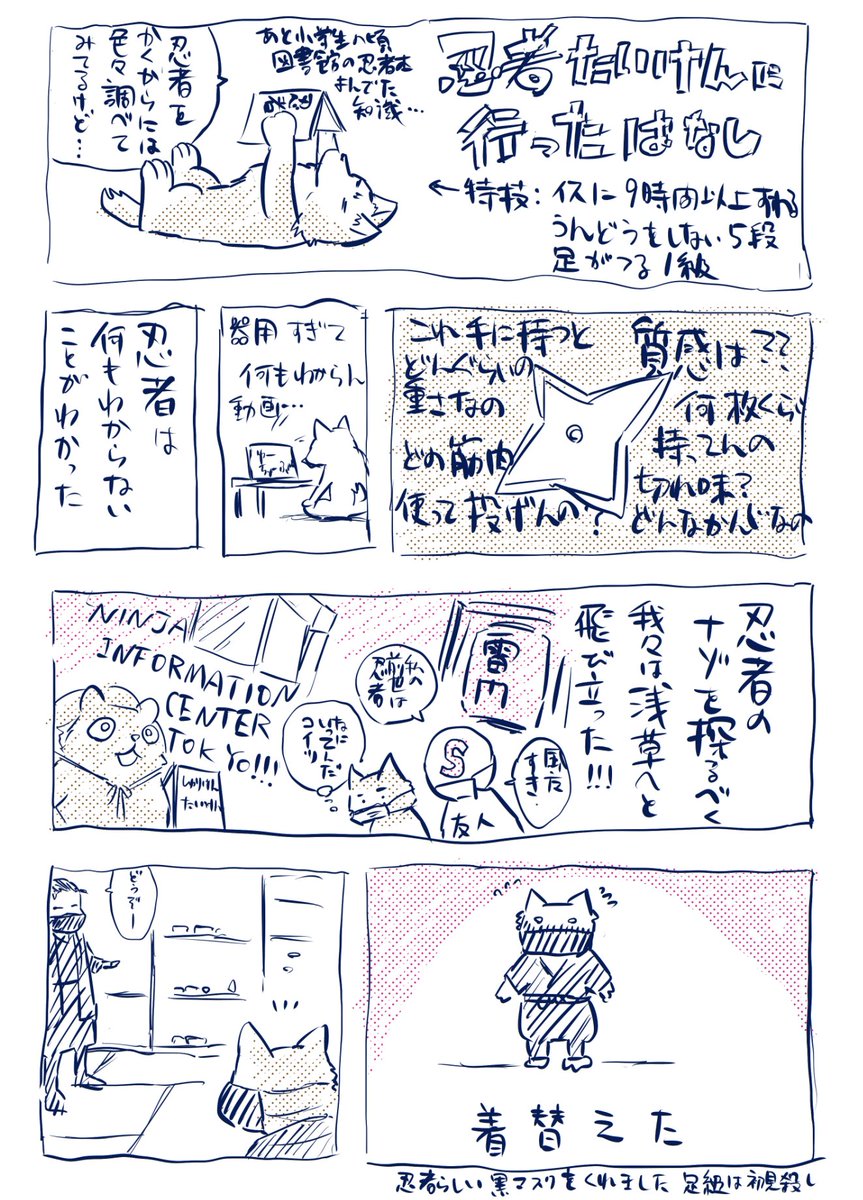 忍者たいけんに
行ったはなし
←特技：イスに9時間以上すわる
うんどうをしない5段
足がつる1級
あと小学生の頃
図書館の忍者本
よんでた
知識…
忍者を
かくからには
色々調べて
みてるけど…
質感は??
何枚くらい
持ってんの
切れ味?
どんなかんじなの
これ手に持つと
どんぐらいの
重さなの
どの筋肉
使って投げんの?
器用すぎて
何もわからん
動画…
忍者は
何もわからない
ことがわかった
忍者の
ナゾを探るべく
我々は浅草へと
飛び立った!!!
雷門
風だ
すき
S
友人
私の
前世は
忍者
なに
いってんだ
コイツ
NINJA
INFORMATION
CENTER
TOKYO!!!
しゅりけん
たいけん
着替えた
忍者らしい黒マスクをくれました 足組は初見殺し
どうぞー